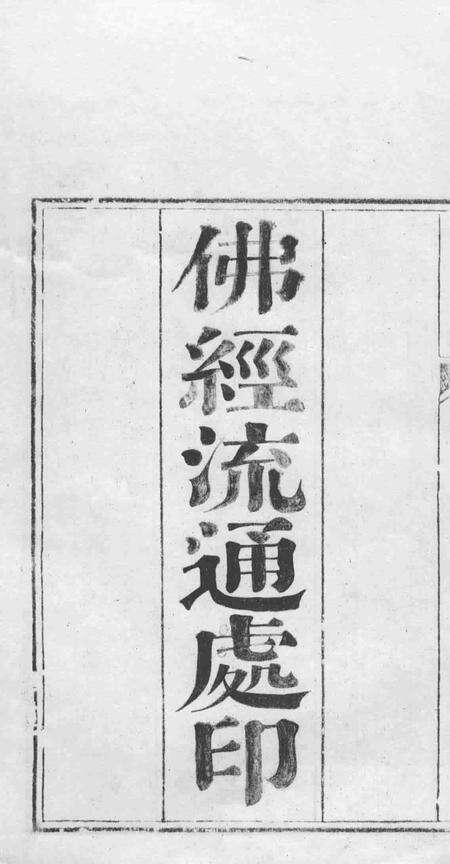 佛經流通處印